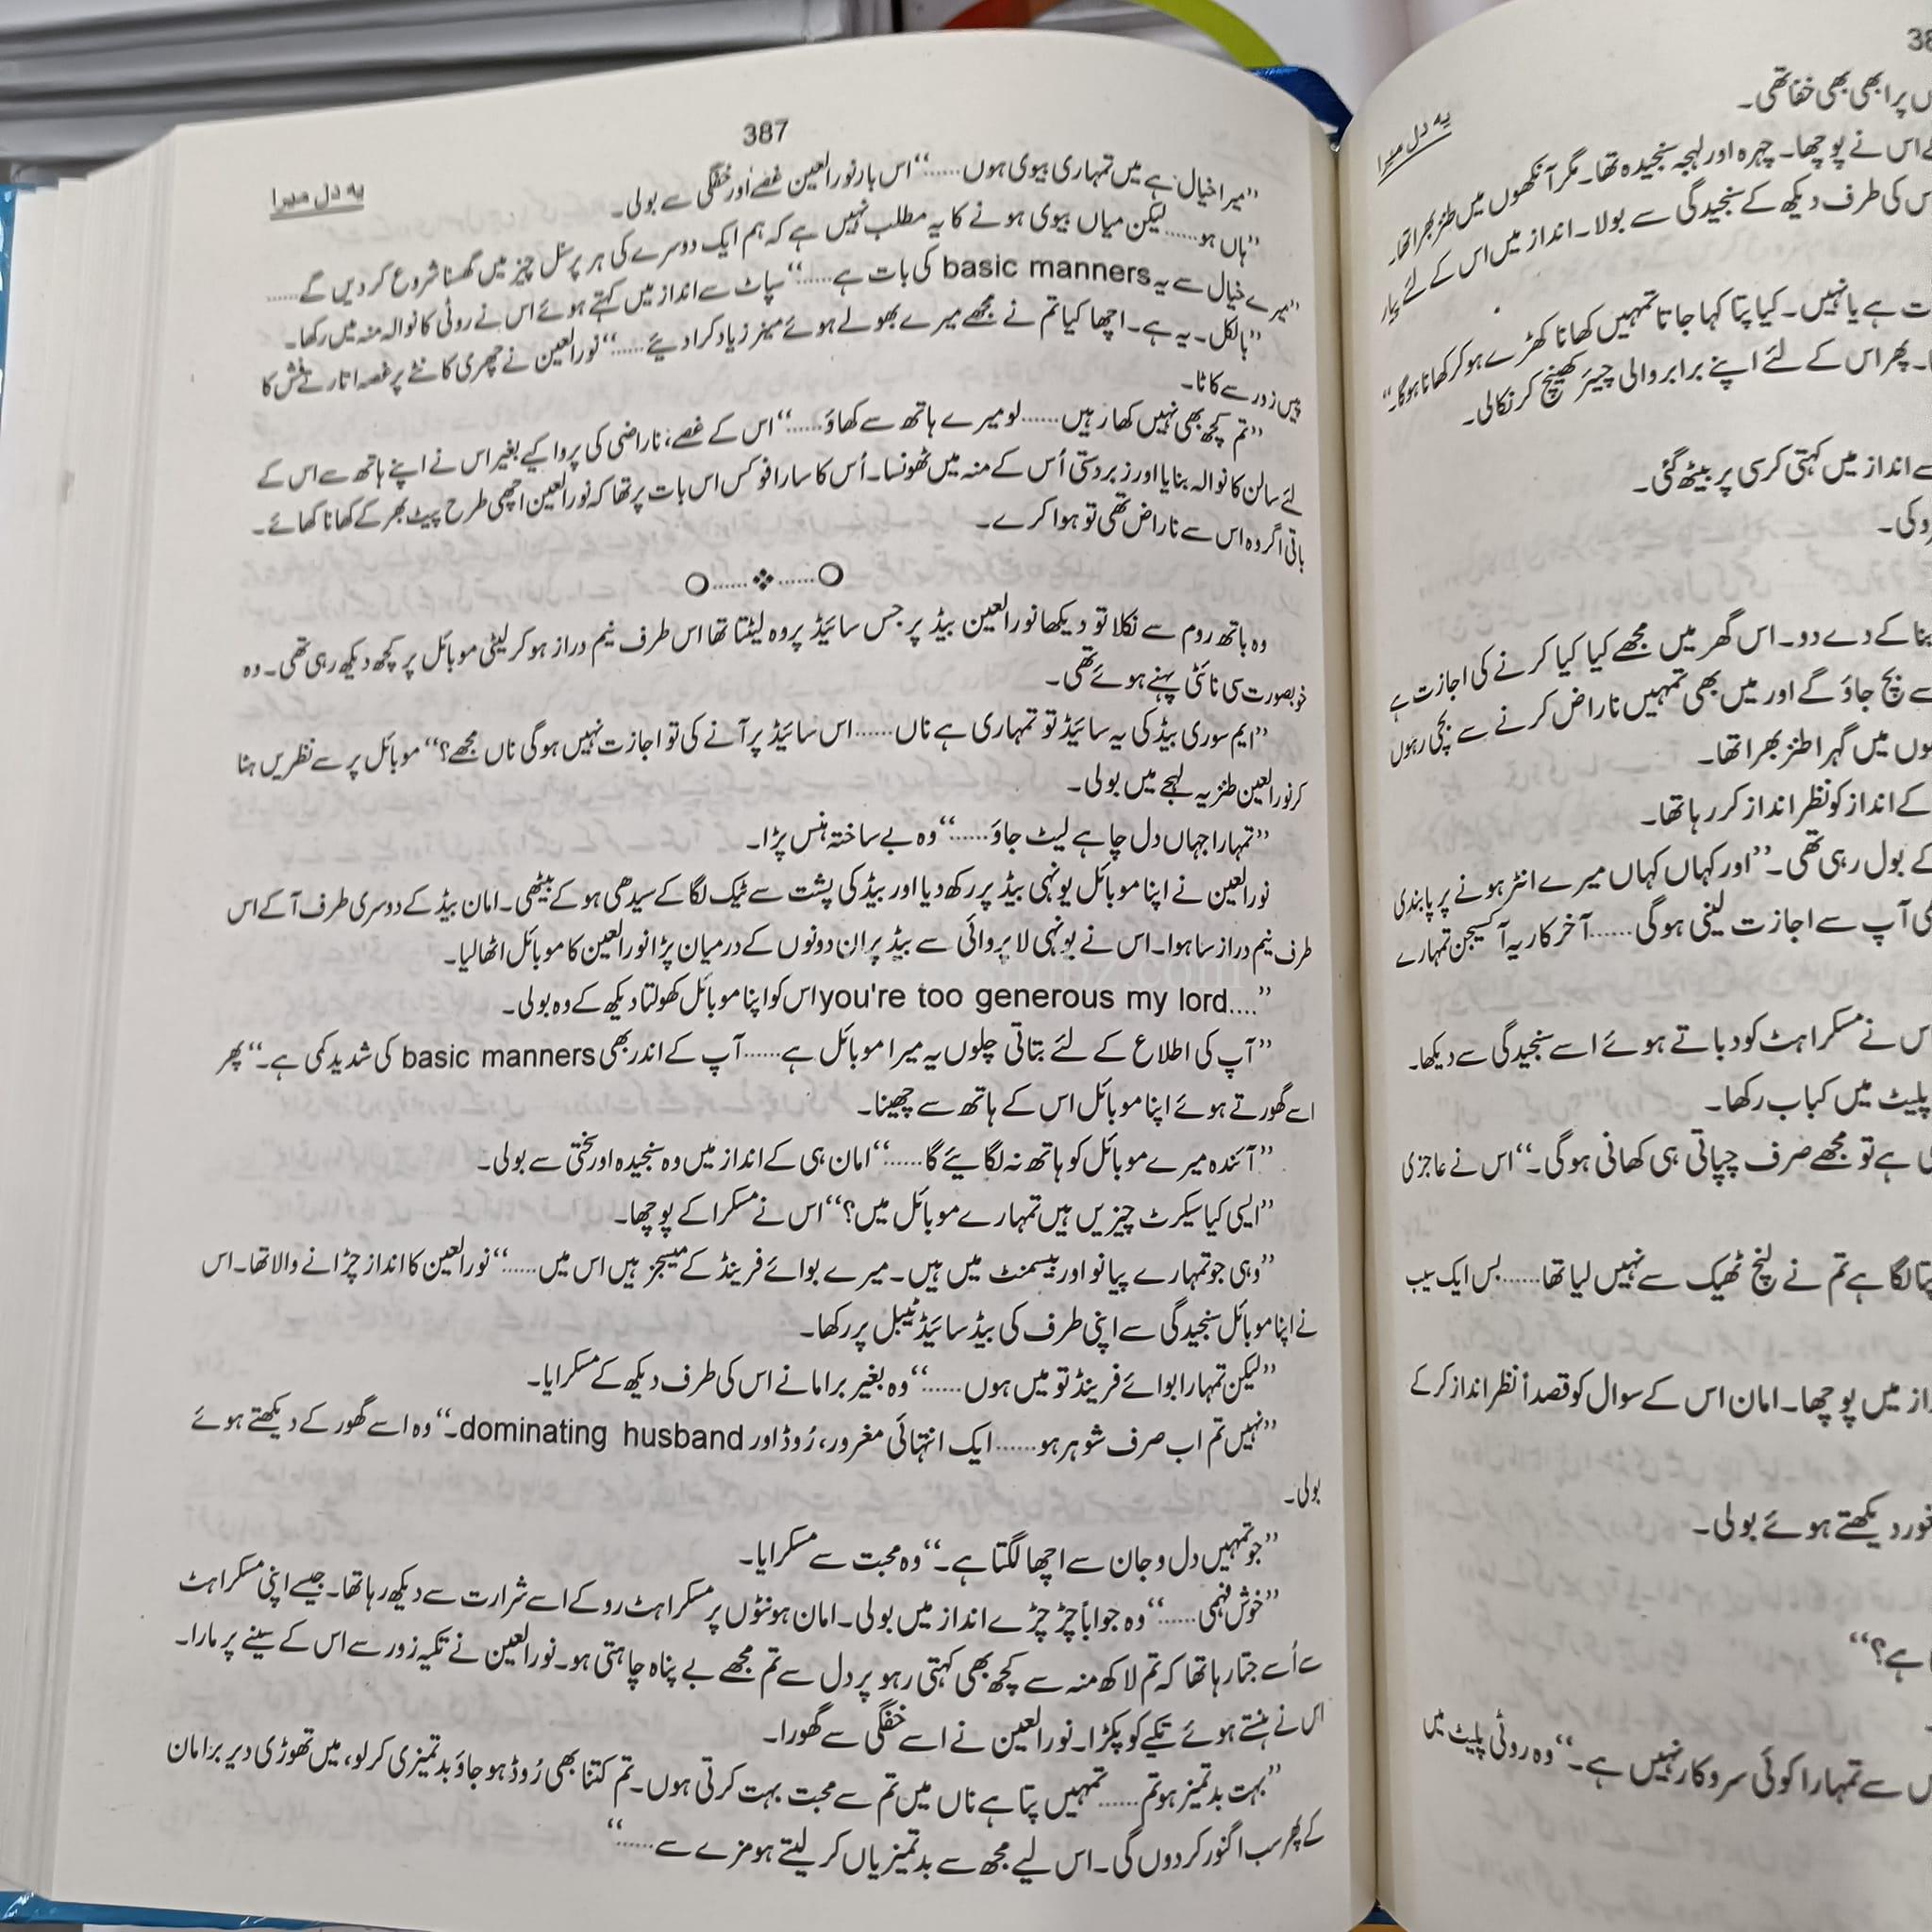 387
یہ دل میرا
”میرا خیال ہے میں تمہاری بیوی ہوں......“ اس بار نور العین غصے اور خفگی سے بولی۔
”ہاں ہو......لیکن میاں بیوی ہونے کا یہ مطلب نہیں ہے کہ ہم ایک دوسرے کی ہر پرسنل چیز میں گھسنا شروع کر دیں گے......
”میرے خیال سے یہ basic manners کی بات ہے......“ سپاٹ سے انداز میں کہتے ہوئے اس نے روٹی کا نوالہ منہ میں رکھا۔
”بالکل۔ یہ ہے۔ اچھا کیا تم نے مجھے میرے بھولے ہوئے مینرز یاد کرا دیئے......“ نور العین نے چھری کانٹے پر غصہ اتارتے فش کا
پیس زور سے کاٹا۔
”تم کچھ بھی نہیں کھا رہیں......لو میرے ہاتھ سے کھاؤ......“ اس کے غصے، ناراضی کی پروا کیے بغیر اس نے اپنے ہاتھ سے اس کے
لئے سالن کا نوالہ بنایا اور زبردستی اُس کے منہ میں ٹھونسا۔ اُس کا سارا فوکس اس بات پر تھا کہ نور العین اچھی طرح پیٹ بھر کے کھانا کھائے۔
باقی اگر وہ اس سے ناراض تھی تو ہوا کرے۔
وہ باتھ روم سے نکلا تو دیکھا نور العین بیڈ پر جس سائیڈ پر وہ لیٹتا تھا اس طرف نیم دراز ہو کر لیٹی موبائل پر کچھ دیکھ رہی تھی۔ وہ
خوبصورت سی نائٹی پہنے ہوئے تھی۔
”ایم سوری بیڈ کی یہ سائیڈ تو تمہاری ہے ناں......اس سائیڈ پر آنے کی تو اجازت نہیں ہوگی ناں مجھے؟“ موبائل پر سے نظریں ہٹا
کر نور العین طنزیہ لہجے میں بولی۔
”تمہارا جہاں دل چاہے لیٹ جاؤ......“ وہ بے ساختہ ہنس پڑا۔
نور العین نے اپنا موبائل یونہی بیڈ پر رکھ دیا اور بیڈ کی پشت سے ٹیک لگا کے سیدھی ہو کے بیٹھی۔ امان بیڈ کے دوسری طرف آ کے اس
طرف نیم دراز سا ہوا۔ اس نے یونہی لا پروائی سے بیڈ پر ان دونوں کے درمیان پڑا نور العین کا موبائل اٹھا لیا۔
”....you're too generous my lord اس کو اپنا موبائل کھولتا دیکھ کے وہ بولی۔
”آپ کی اطلاع کے لئے بتاتی چلوں یہ میرا موبائل ہے......آپ کے اندر بھی basic manners کی شدید کمی ہے۔“ پھر
اسے گھورتے ہوئے اپنا موبائل اس کے ہاتھ سے چھینا۔
”آئندہ میرے موبائل کو ہاتھ نہ لگائیے گا......“ امان ہی کے انداز میں وہ سنجیدہ اور سختی سے بولی۔
”ایسی کیا سیکرٹ چیزیں ہیں تمہارے موبائل میں؟“ اس نے مسکرا کے پوچھا۔
”وہی جو تمہارے پیانو اور بیسمنٹ میں ہیں۔ میرے بوائے فرینڈ کے میسجز ہیں اس میں......“ نور العین کا انداز چڑانے والا تھا۔ اس
نے اپنا موبائل سنجیدگی سے اپنی طرف کی بیڈ سائیڈ ٹیبل پر رکھا۔
”لیکن تمہارا بوائے فرینڈ تو میں ہوں......“ وہ بغیر برا مانے اس کی طرف دیکھ کے مسکرایا۔
”نہیں تم اب صرف شوہر ہو......ایک انتہائی مغرور، رُوڈ اور dominating husband۔“ وہ اسے گھور کے دیکھتے ہوئے
بولی۔
”جو تمہیں دل و جان سے اچھا لگتا ہے۔“ وہ محبت سے مسکرایا۔
”خوش فہمی......“ وہ جواباً چڑ چڑے انداز میں بولی۔ امان ہونٹوں پر مسکراہٹ روکے اسے شرارت سے دیکھ رہا تھا۔ جیسے اپنی مسکراہٹ
سے اُسے جتا رہا تھا کہ تم لاکھ منہ سے کچھ بھی کہتی رہو پر دل سے تم مجھے بے پناہ چاہتی ہو۔ نور العین نے تکیہ زور سے اس کے سینے پر مارا۔
اس نے ہنستے ہوئے تکیے کو پکڑا۔ نور العین نے اسے خفگی سے گھورا۔
”بہت بدتمیز ہو تم......تمہیں پتا ہے ناں میں تم سے محبت بہت کرتی ہوں۔ تم کتنا بھی رُوڈ ہو جاؤ بدتمیزی کر لو، میں تھوڑی دیر برا مان
کے پھر سب اگنور کر دوں گی۔ اس لیے مجھ سے بدتمیزیاں کر لیتے ہو مزے سے......“
یہ دل میرا
پر ابھی بھی خفا تھی۔
اس نے پوچھا۔ چہرہ اور لہجہ سنجیدہ تھا۔ مگر آنکھوں میں طنز بھرا تھا۔
کی طرف دیکھ کے سنجیدگی سے بولا۔ انداز میں اس کے لئے پیار
ہے یا نہیں۔ کیا پتا کہا جاتا تمہیں کھانا کھڑے ہو کر کھانا ہوگا۔“
پھر اس کے لئے اپنے برابر والی چیئر کھینچ کر نکالی۔
انداز میں کہتی کرسی پر بیٹھ گئی۔
کی۔
بنا کے دے دو۔ اس گھر میں مجھے کیا کیا کرنے کی اجازت ہے
سے بچ جاؤ گے اور میں بھی تمہیں ناراض کرنے سے بچی رہوں
میں گہرا طنز بھرا تھا۔
کے انداز کو نظر انداز کر رہا تھا۔
کے بول رہی تھی۔ ”اور کہاں کہاں میرے انٹر ہونے پر پابندی
آپ سے اجازت لینی ہوگی......آخر کار یہ آکسیجن تمہارے
اس نے مسکراہٹ کو دباتے ہوئے اسے سنجیدگی سے دیکھا۔
پلیٹ میں کباب رکھا۔
ہے تو مجھے صرف چپاتی ہی کھانی ہوگی۔“ اس نے عاجزی
پتا لگا ہے تم نے لنچ ٹھیک سے نہیں لیا تھا......بس ایک سیب
میں پوچھا۔ امان اس کے سوال کو قصداً نظر انداز کر کے
دیکھتے ہوئے بولی۔
ہے؟“
سے تمہارا کوئی سروکار نہیں ہے۔“ وہ روٹی پلیٹ میں